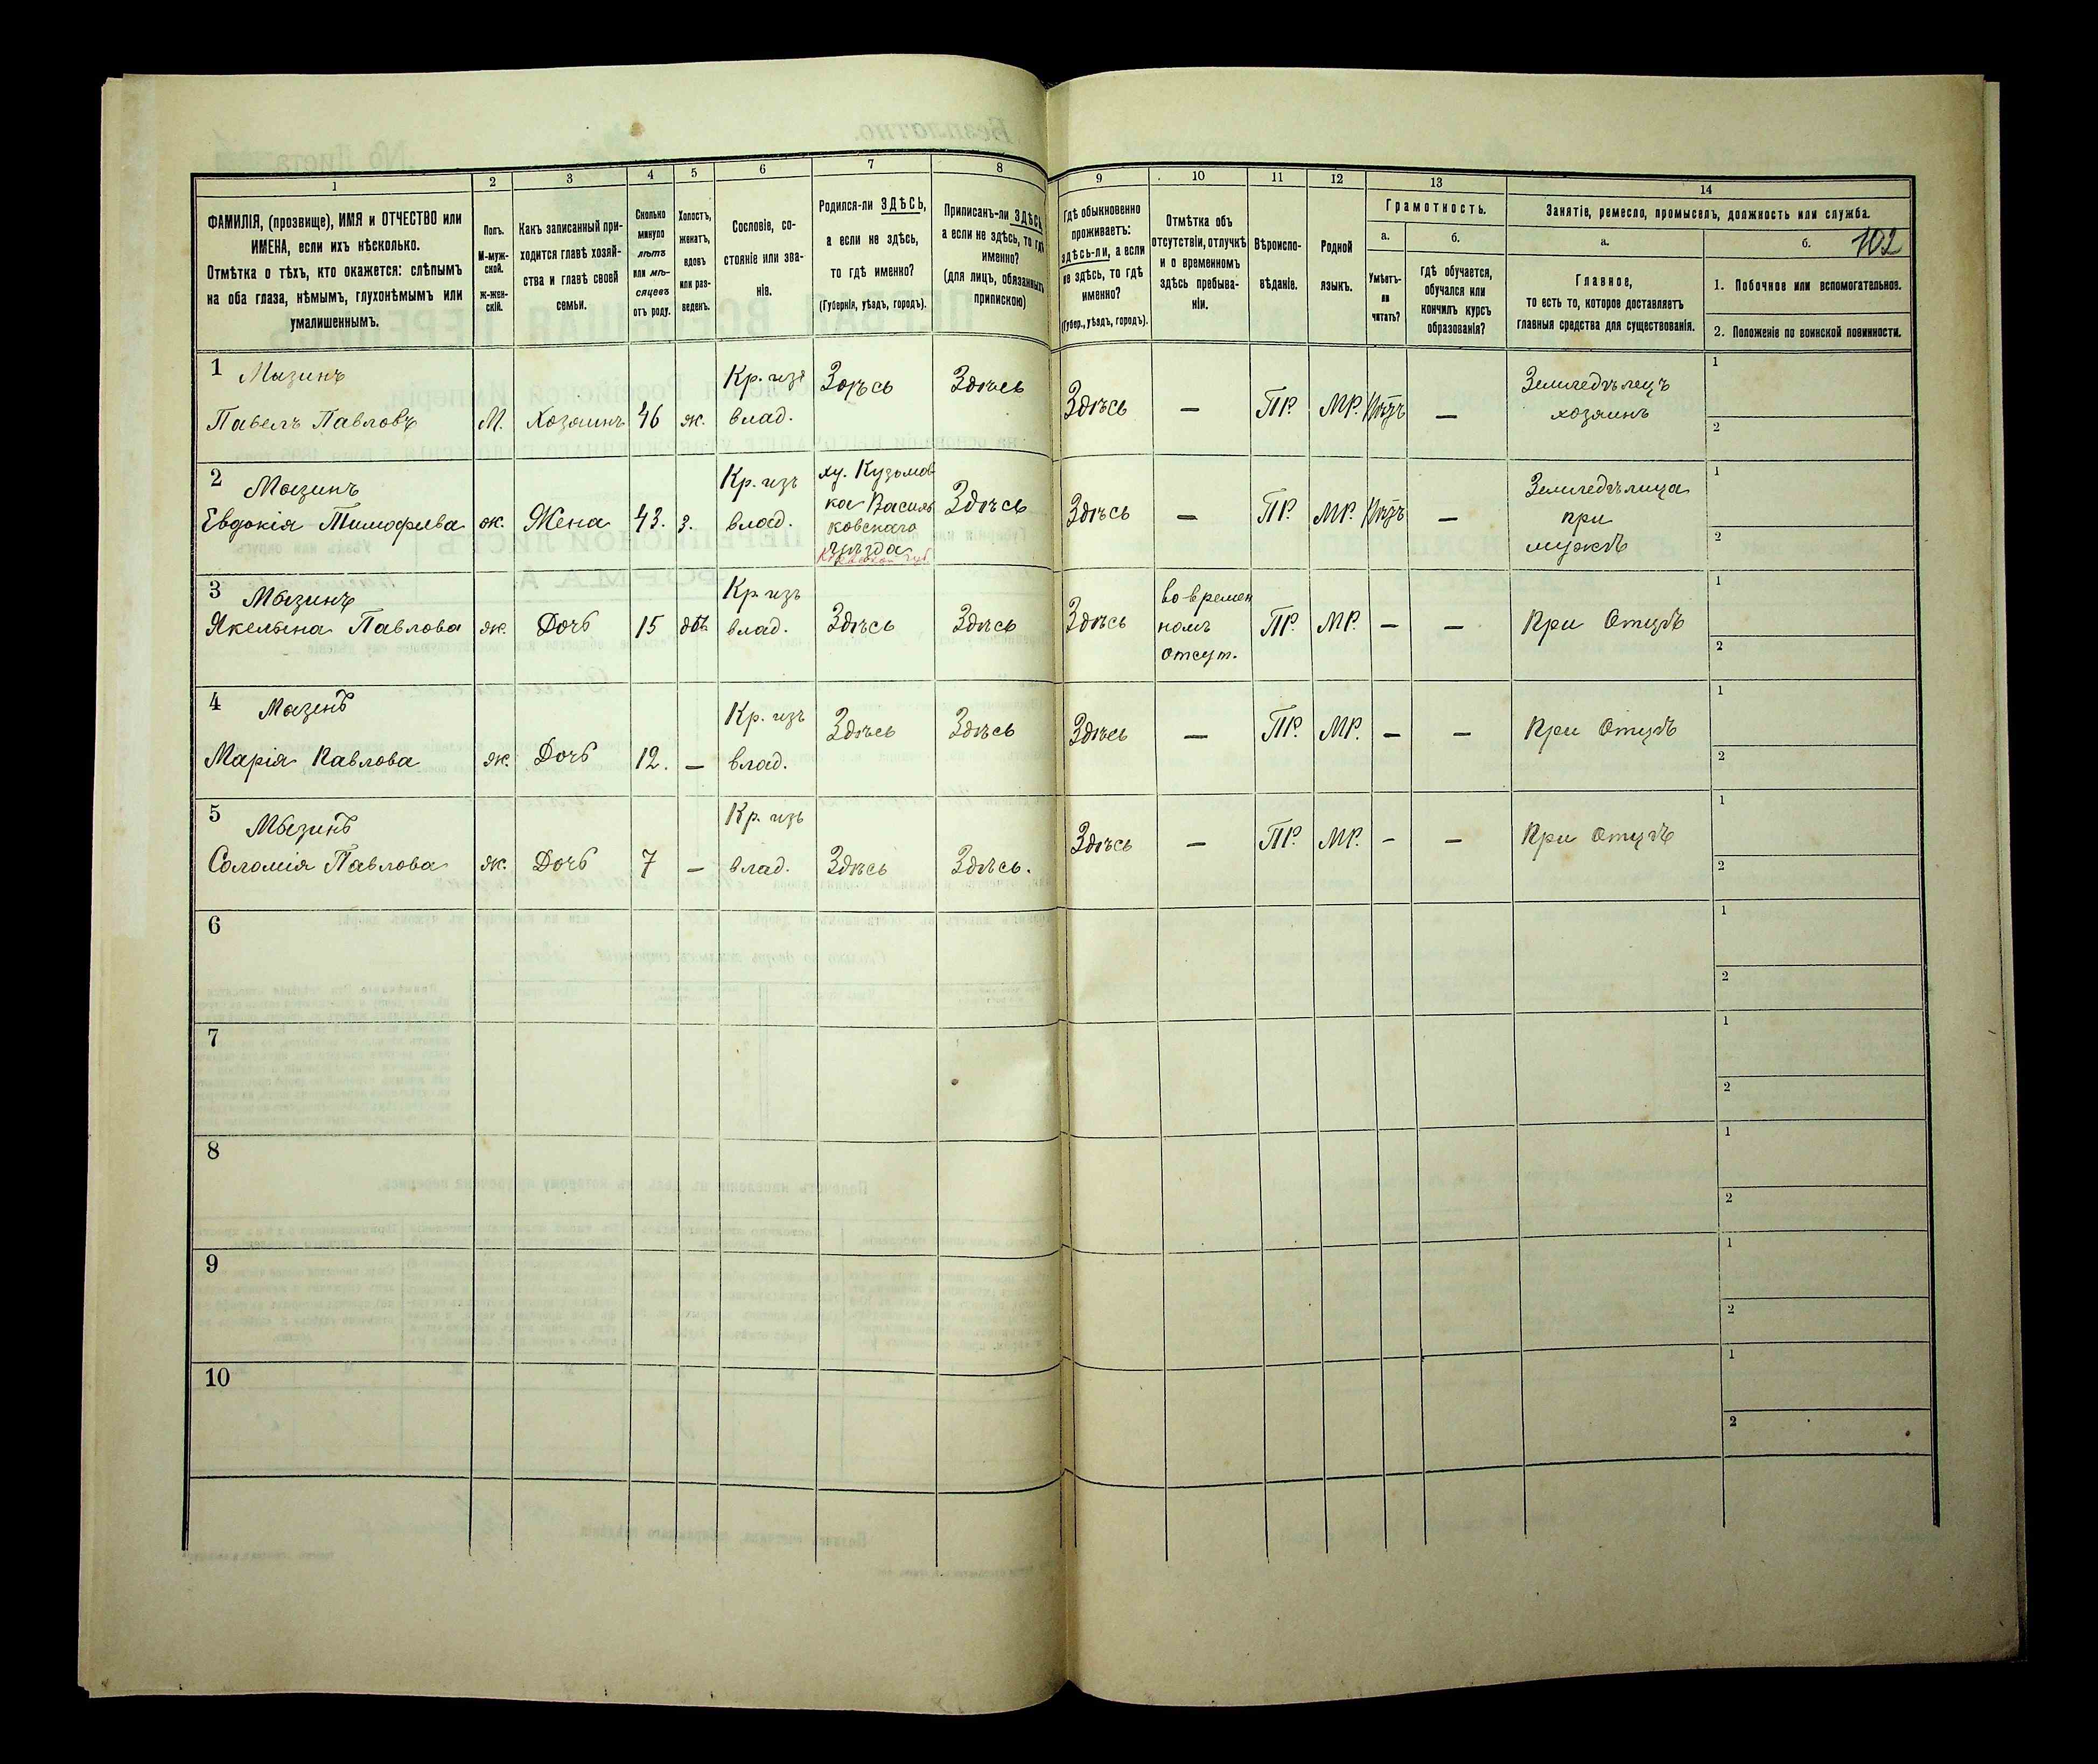 102
1
2
3
4
5
6
7
8
9
10
11
12
13
14
ФАМИЛІЯ, (прозвище), ИМЯ и ОТЧЕСТВО или
ИМЕНА, если ихъ нѣсколько.
Отмѣтка о тѣхъ, кто окажется: слѣпымъ
на оба глаза, нѣмымъ, глухонѣмымъ или
умалишеннымъ.
Полъ.
М-муж-
ской.
Ж-жен-
скій.
Какъ записанный при-
ходится главѣ хозяй-
ства и главѣ своей
семьи.
Сколько
минуло
лѣтъ
или мѣ-
сяцевъ
отъ роду.
Холостъ,
женатъ,
вдовъ
или раз-
веденъ.
Сословіе, со-
стояніе или зва-
ніе.
Родился-ли ЗДѢСЬ,
а если не здѣсь,
то гдѣ именно?
(Губернія, уѣздъ, городъ).
Приписанъ-ли ЗДѢСЬ,
а если не здѣсь, то гдѣ
именно?
(для лицъ, обязанныхъ
припискою)
Гдѣ обыкновенно
проживаетъ:
здѣсь-ли, а если
не здѣсь, то гдѣ
именно?
(Губер., уѣздъ, городъ).
Отмѣтка объ
отсутствіи, отлучкѣ
и о временномъ
здѣсь пребыва-
ніи.
Вѣроиспо-
вѣданіе.
Родной
языкъ.
Грамотность.
а.
Умѣетъ-
ли
читать?
б.
гдѣ обучается,
обучался или
кончилъ курсъ
образованія?
Занятіе, ремесло, промыселъ, должность или служба.
а.
Главное,
то есть то, которое доставляетъ
главныя средства для существованія.
б.
1. Побочное или вспомогательное.
2. Положеніе по воинской повинности.
1 Мазинъ
Павелъ Павловъ
М.
Хозяинъ
46
ж.
Кр. изъ
влад.
Здѣсь
Здѣсь
Здѣсь
—
ПР.
МР.
—
Земледѣлецъ
хозяинъ
1
2
2 Мазинъ
Евдокія Тимофѣева
ж.
Жена
43.
з.
Кр. изъ
влад.
ху. Кузьмов
ка Василь
ковскаго
уѣзда
Кіевской губ
Здѣсь
Здѣсь
—
ПР.
МР.
—
Земледѣлица
при
мужѣ
1
2
3 Мазинъ
Якелына Павлова
ж.
Дочь
15
дѣв.
Кр. изъ
влад.
Здѣсь
Здѣсь
Здѣсь
во времен
номъ
отсут.
ПР.
МР.
—
—
При Отцѣ
1
2
4 Мазинъ
Марія Павлова
ж.
Дочь
12.
—
Кр. изъ
влад.
Здѣсь
Здѣсь
Здѣсь
—
ПР.
МР.
—
—
При Отцѣ
1
2
5 Мазинъ
Соломія Павлова
ж.
Дочь
7
—
Кр. изъ
влад.
Здѣсь
Здѣсь.
Здѣсь
—
ПР.
МР.
-
—
При Отцѣ
1
2
6
1
2
7
1
2
8
1
2
9
1
2
10
1
2